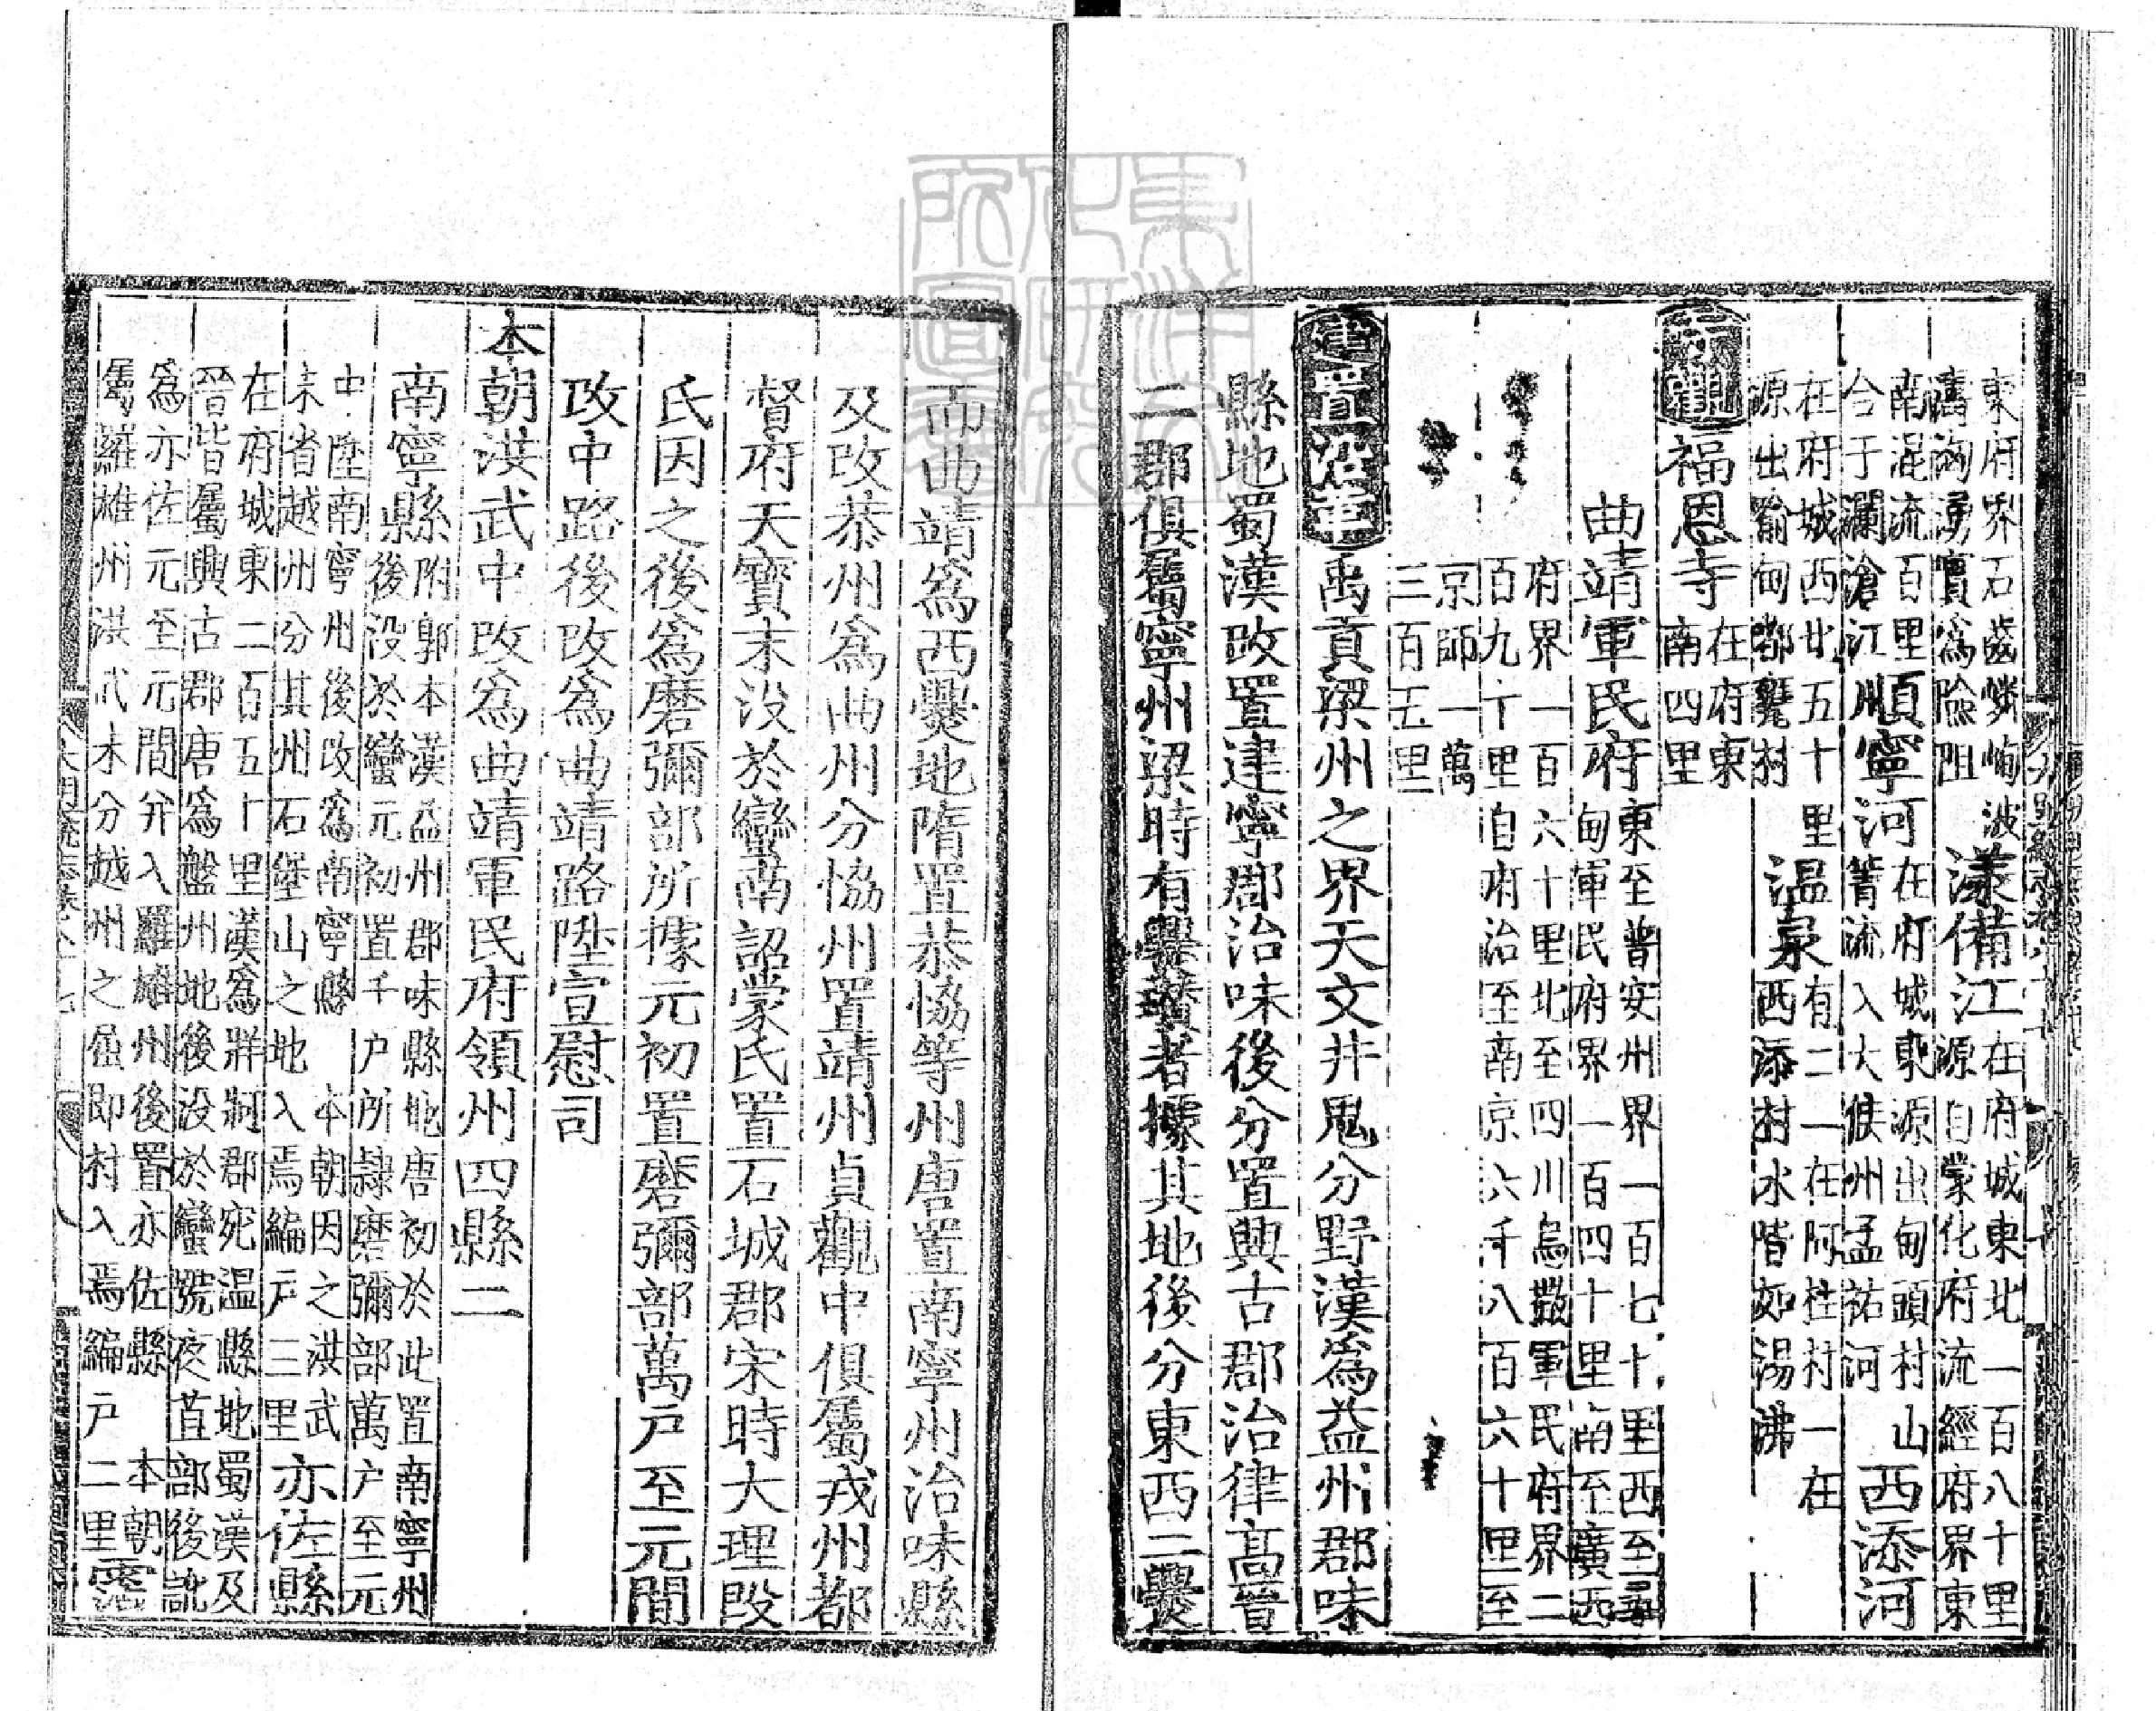 東府界石齒嶙峋波濤洶湧實爲險阻漾備江在府城東北一百八十里源自蒙化府流經府界東
南混流百里合于瀾滄江順寧河在府城東源出甸頭村山箐流入大侯州孟祐河西添河
在府城西廿五十里源出瑜甸鄉甕村溫泉有二一在阿柱村一在西添村水皆如湯沸
寺觀福恩寺在府東南四里
曲靖軍民府東至普安州界一百七十里西至尋甸軍民府界一百四十里南至廣西
府界一百六十里北至四川烏撒軍民府界二百九十里自府治至南京六千八百六十里至
京師一萬三百五里
建置沿革禹貢梁州之界天文井鬼分野漢爲益州郡味
縣地蜀漢改置建寧郡治味後分置興古郡治律高晉
二郡俱屬寧州梁時有爨瓚者據其地後分東西二爨
而曲靖爲西爨地隋置恭恊等州唐置南寧州治味縣
及改恭州爲曲州分恊州置靖州貞觀中俱屬戎州都
督府天寶末没於蠻南詔蒙氏置石城郡宋時大理段
氏因之後爲磨彌部所據元初置磨彌部萬戶至元間
改中路後改爲曲靖路陞宣慰司
本朝洪武中改爲曲靖軍民府領州四縣二
南寧縣附郭本漢益州郡味縣地唐初於此置南寧州後没於蠻元初置千戶所隷磨彌部萬戶至元
中陞南寧州後改爲南寧縣 本朝因之洪武末省越州分其州石堡山之地入焉編戶三里亦佐縣
在府城東二百五十里漢爲牂牁郡宛温縣地蜀漢及晉皆屬興古郡唐爲盤州地後没於蠻號夜苴部後訛
爲亦佐元至元間并入羅雄州後置亦佐縣 本朝屬羅雄州洪武末分越州之屈即村入焉編戶二里霑